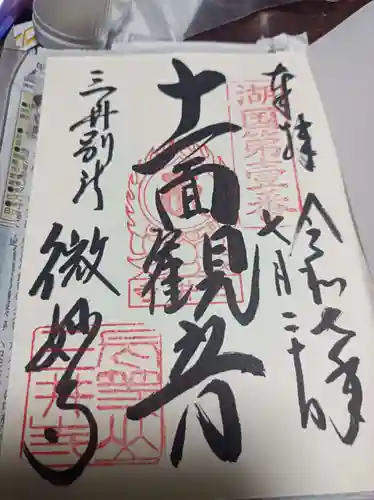 奉拝
令和七年
七月二十日
湖国第壹番
十一面観音
三井別所
微妙寺